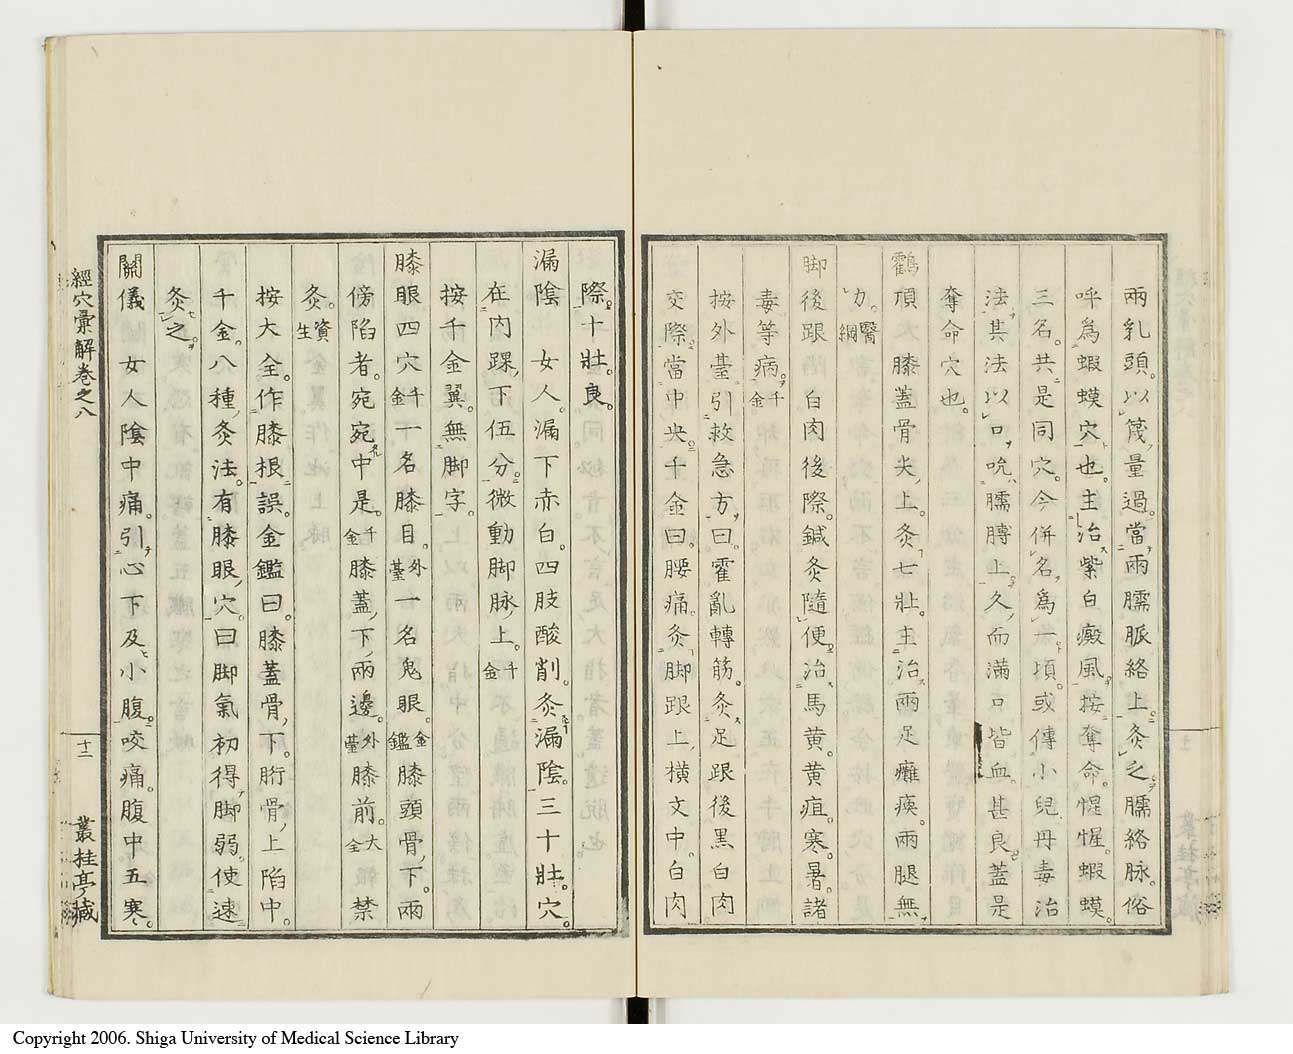 兩乳頭以篾量過當兩臑脈絡上灸之臑絡脉俗
呼爲蝦蟆穴也主治紫白癜風按奪命惺惺蝦蟆
三名共是同穴今併名爲一項或傳小兒丹毒治
法其法以口吮臑膊上久而滿口皆血甚良蓋是
奪命穴也
鸛頂 膝蓋骨尖上灸七壯主治兩足癱瘓兩腿無
力醫綱
脚後跟 白肉後際鍼灸隨便治馬黄黄疸寒暑諸
毒等病千金
按外臺引救急方曰霍亂轉筋灸足跟後黑白肉
交際當中央千金曰腰痛灸脚跟上横文中白肉
際十壯良
漏陰 女人漏下赤白四肢酸削灸漏陰三十壯穴
在内踝下伍分微動脚脉上千金
按千金翼無脚字
膝眼四穴千金一名膝目外臺一名鬼眼金鑑膝頭骨下兩
傍陷者宛宛中是千金膝蓋下兩邊外臺膝前大全禁
灸資生
按大全作膝根誤金鑑曰膝蓋骨下胻骨上陷中
千金八種灸法有膝眼穴曰脚氣初得脚弱使速
灸之
關儀 女人陰中痛引心下及小腹咬痛腹中五寒
經穴彙解卷之八
十二
叢桂亭藏
Copyright 2006. Shiga University of Medical Science Library